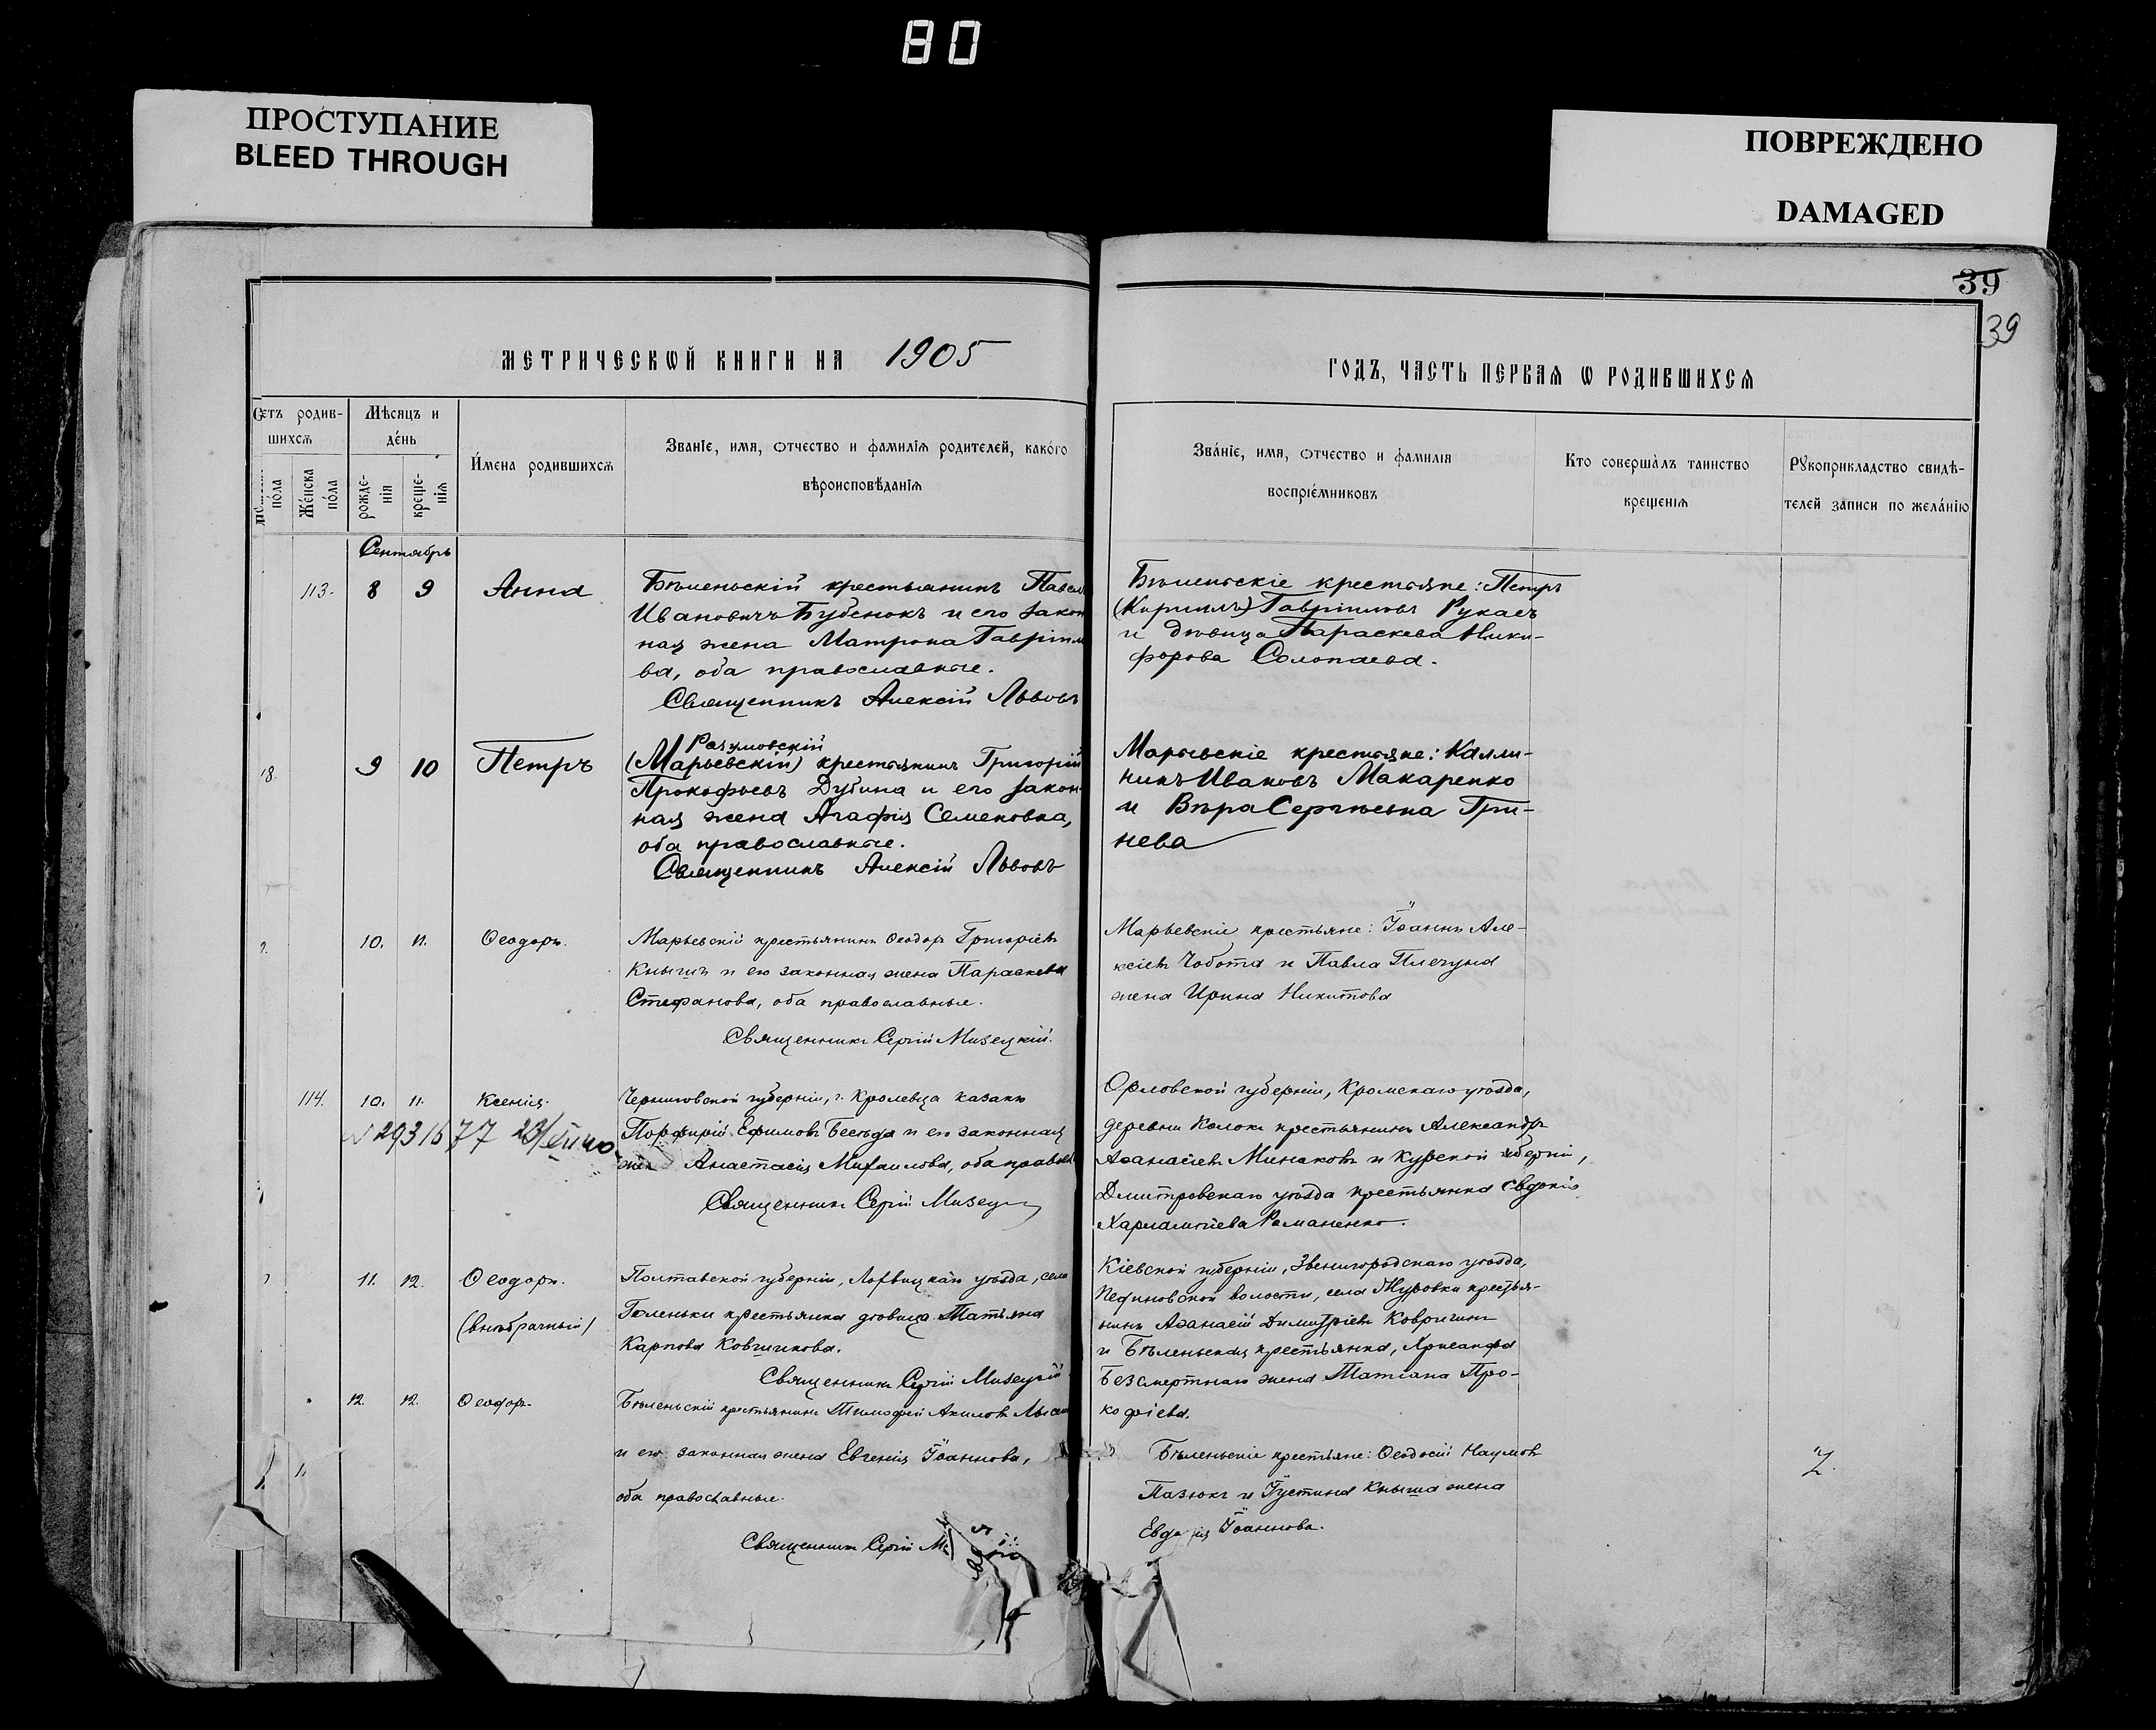 80
ПРОСТУПАНИЕ
BLEED THROUGH
ПОВРЕЖДЕНО
DAMAGED
39
39
МЕТРИЧЕСКѠЙ КНИГИ НА 1905
ГОДЪ, ЧАСТЬ ПЕРВАЯ Ѡ РОДИВШИХСѦ
Счетъ родив-
шихсѧ
Мѣсяцъ и
де́нь
И́мена родившихсѧ
Званїе, имя, ѻтчество и фамилїя родителей, како́го
вѣроисповѣданїя
пола
Же́нска
по́ла
рожде-
нїя
креще-
нїя
Зва́нїе, имя, ѻтчество и фамилїя
воспрїе́мниковъ
Кто соверша̀лъ таинство
крещенїя
Рꙋкоприкладство свидѣ-
телей записи по жела́нїю
Сентябрь
113. 8 9 Анна
Бѣленьскій крестьянинъ Павелъ
Ивановичъ Бубенокъ и его закон
ная жена Матрона Гавріило
ва, оба православные.
Священникъ Алексій Львовъ
Бѣленьскіе крестьяне: Петръ
(Кириллъ) Гавріиловъ Рукасъ
и дѣвица Параскева Ники-
форова Солопаева.
18. 9 10 Петръ
Разумовскій
(Марьевскій) крестьянинъ Григорій
Прокофьевъ Дубина и его закон-
ная жена Агафія Семеновна,
оба православные.
Священникъ Алексій Львовъ
Марьевскіе крестьяне: Калли-
никъ Ивановъ Макаренко
и Вѣра Сергѣевна Гри-
нева
10. 11. Ѳеодоръ.
Марьевскій крестьянинъ Ѳеодоръ Григоріевъ
Кнышъ и его законная жена Параскева
Стефанова, оба православные.
Священникъ Сергій Мизецкій.
Марьевскіе крестьяне: Іоаннъ Але-
ксіевъ Чобота и Павла Плегуна
жена Ирина Никитова
114. 10. 11. Ксенія.
Черниговской губерніи, г. Кролевца казакъ
Порфирій Ефимовъ Бесѣда и его законная
жена Анастасія Михаилова, оба правосл
Священникъ Сергій Мизец
Орловской губерніи, Кромскаго уѣзда,
деревни Колокъ крестьянинъ Александръ
Аѳанасіевъ Минаковъ и Курской губерніи,
Дмитровскаго уѣзда крестьянка Евдокія
Харлампіева Романенко.
11. 12. Ѳеодоръ.
(внѣбрачный)
Полтавской губерніи, Лохвицкаго уѣзда, села
Галеньки крестьянка дѣвица Татьяна
Карпова Ковчикова.
Священникъ Сергій Мизецкій
Кіевской губерніи, Звенигородскаго уѣзда,
волости, села Журовки крестья-
нинъ Аѳанасій Димитріевъ Ковригинъ
и Бѣленьская крестьянка, Хрисанфа
Безсмертнаго жена Татіана Про-
кофіева.
12. 12. Ѳеодоръ
Бѣленьскій крестьянинъ Тимофей Акимовъ
и его законная жена Евгенія Іоаннова,
оба православные.
Священникъ Сергій
Бѣленьскіе крестьяне: Ѳеодосій Наумовъ
Пазюкъ и Іустина Кныша жена
Іоаннова.